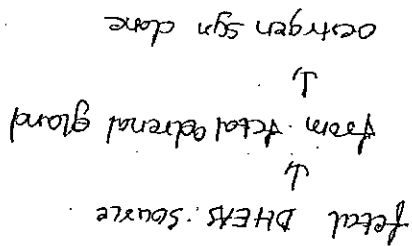 fetal DHEAS: source
↓
from fetal adrenal gland
↓
oestrogen syn done